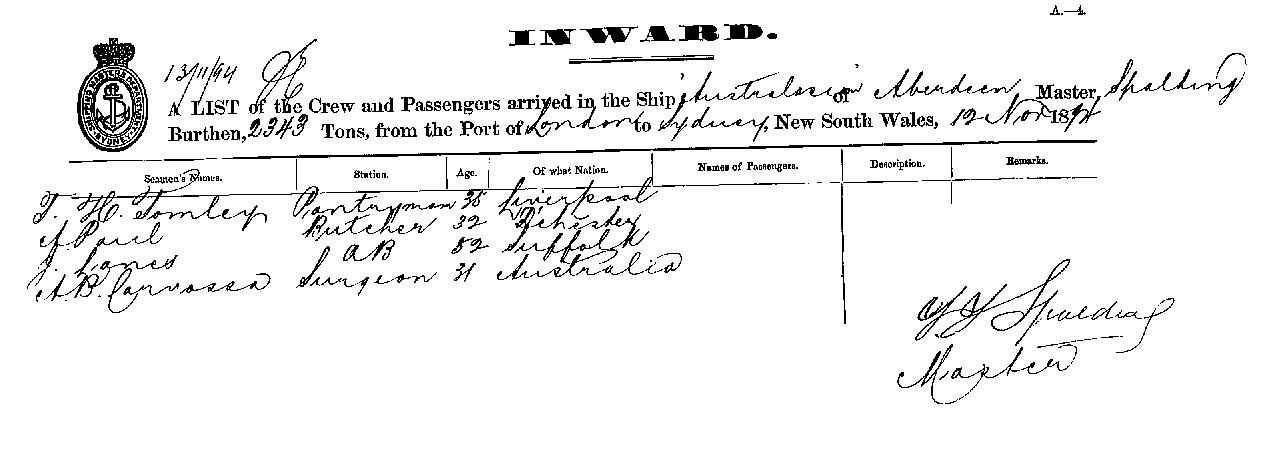 A.—4.
INWARD.
13/11/94
A LIST of the Crew and Passengers arrived in the Ship "Australasian" of Aberdeen Master, Spalding
Burthen, 2343 Tons, from the Port of London to Sydney, New South Wales, 12 Nov 1894
Seamen's Names. Station. Age. Of what Nation. Names of Passengers. Description. Remarks.
T. H. Tomley Pantryman 35 Liverpool
A Paul Butcher 32
J. AB 52 Suffolk
A B. Carvosso Surgeon 31 Australia
Spalding
Master